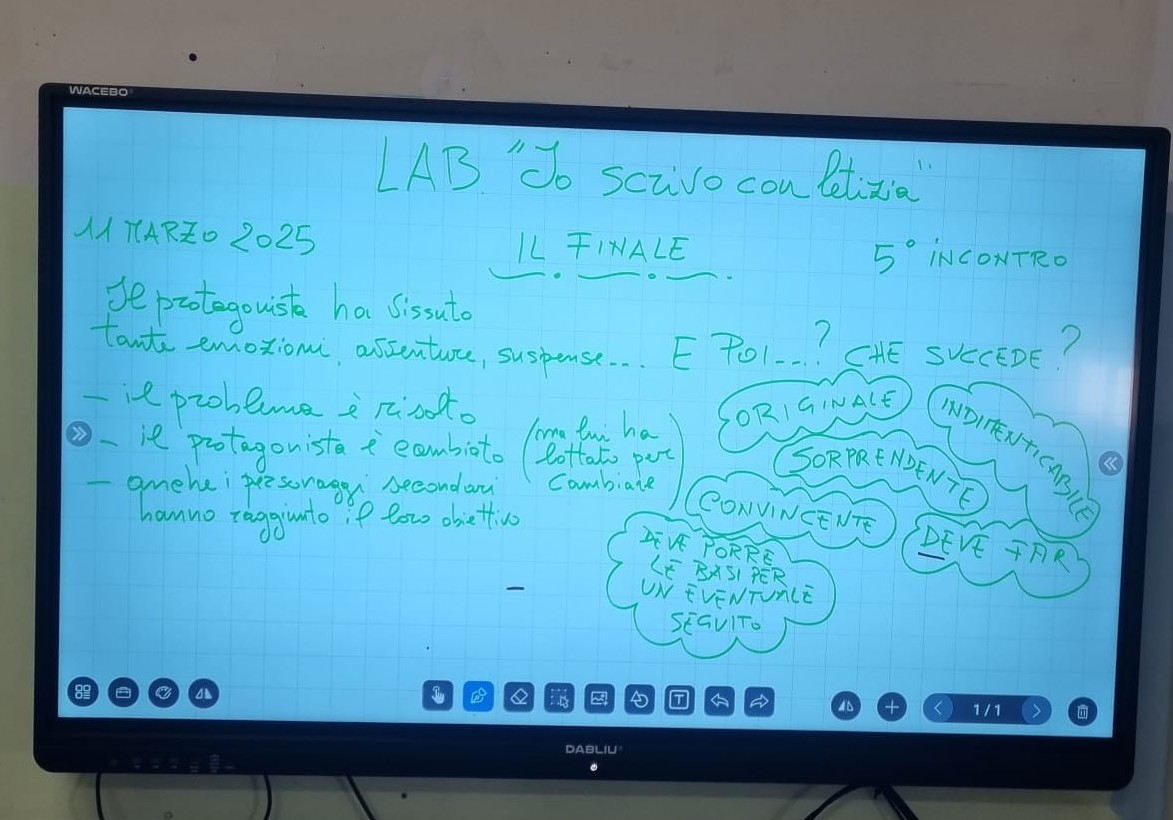 WACEBO
LAB. "Io scrivo con letizia"
11 MARZO 2025
IL FINALE
5° INCONTRO
Il protagonista ha vissuto
tante emozioni, avventure, suspense...
E POI...? CHE SUCCEDE?
- il problema è risolto
- il protagonista è cambiato
(ma lui ha
lottato per
cambiare)
- anche i personaggi secondari
hanno raggiunto il loro obiettivo
ORIGINALE
INDIMENTICABILE
SORPRENDENTE
CONVINCENTE
DEVE FAR
DEVE PORRE
LE BASI PER
UN EVENTUALE
SEGUITO
1/1
DABLIU